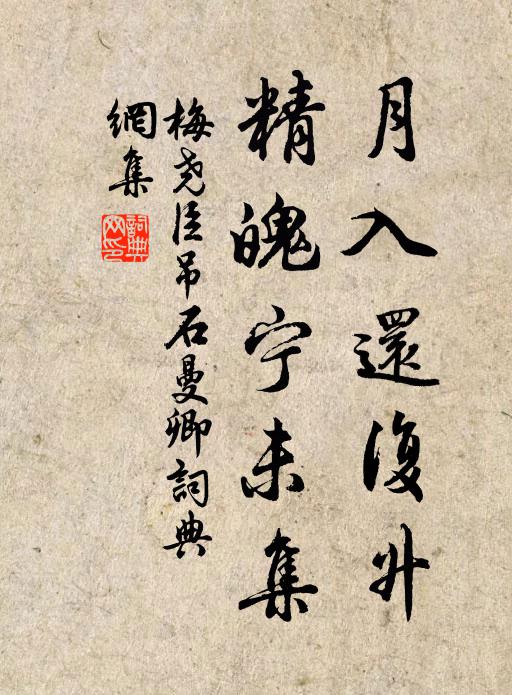 月入還復升
精魄宁未集
梅尧臣吊石曼卿詞典
網集
詞典
网印